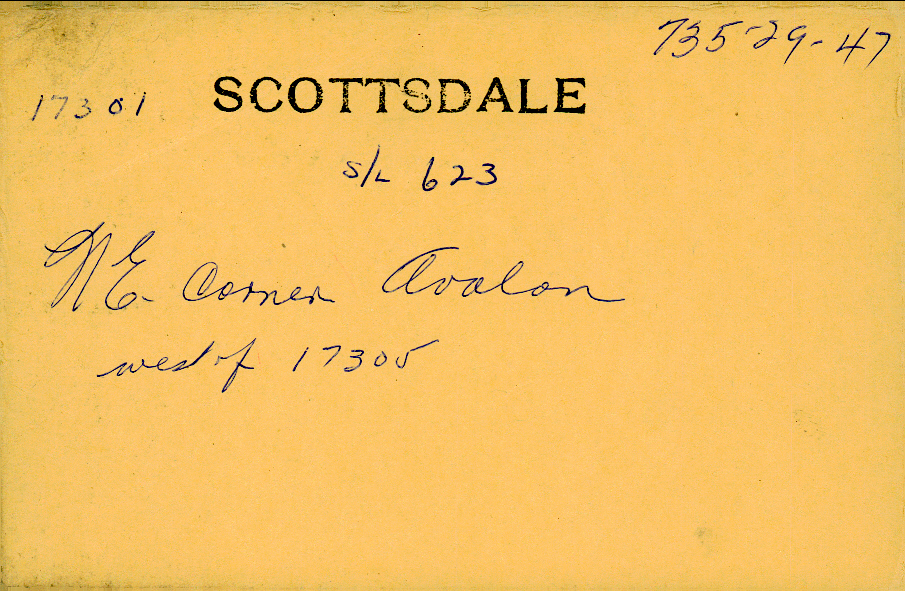 735-29-47
17301 SCOTTSDALE
S/L 623
NE. Corner Avalon
west of 17305